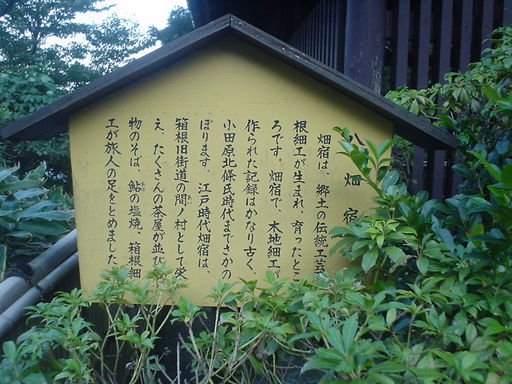 畑宿
畑宿は、郷土の伝統工芸
根細工が生まれ、育ったとこ
ろです。畑宿で、木地細工が
作られた記録はかなり古く、
小田原北條氏時代までさかの
ぼります。江戸時代畑宿は、
箱根旧街道の間ノ村として栄
え、たくさんの茶屋が並び
物のそば、鮎の塩焼、箱根細
工が旅人の足をとめました。